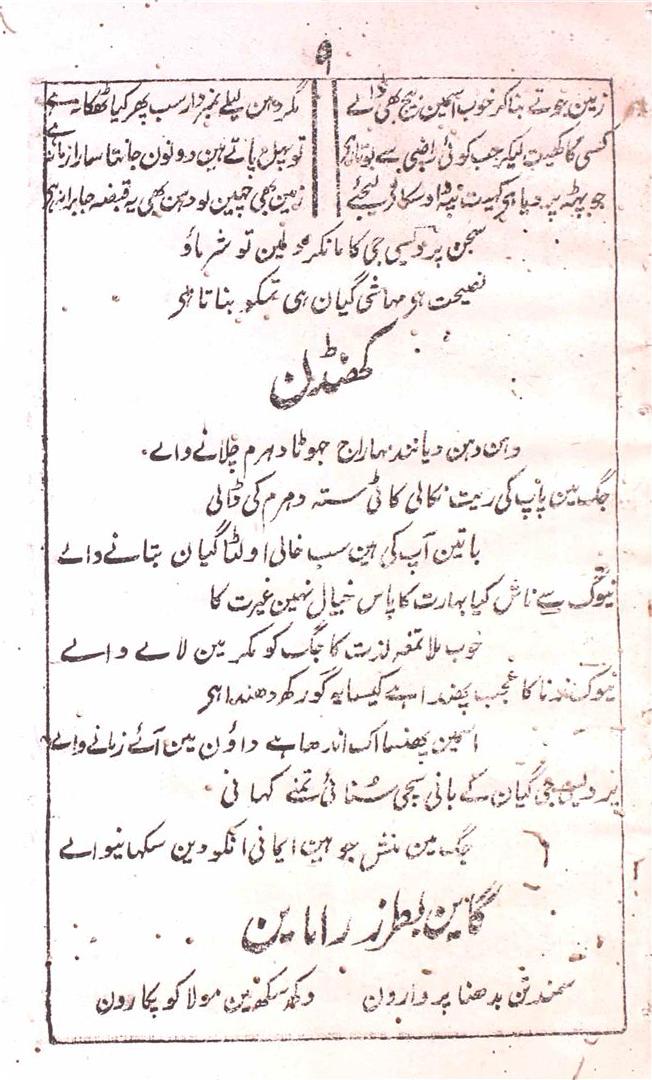 ۹
زمین جوتے بناکر خوب اسمین بیج بھی ڈالے مگر دہن پہلے نمبردار سب پھر کیا ٹھکانہ ہے
کسی کا کھیت لیکر جب کوئی راضی سے بوتا ہی تو پھل پاتے ہین دونون جانتا سارا زمانہ ہے
جو پٹہ پر دیا ہی کھیت اوسکا لیجئے زمین بھی چھین لو دہن بھی یہ قبضہ جابرانہ ہی
سجن پردیسی جی کا مانکر تو شرماؤ
نصیحت ہو مہاشی گیان ہی تمکو بناتا ہی
کھنڈن
دہن دہن دیانند مہاراج جھوٹا دہرم چلانے والے۔
جگ مین پاپ کی ریت نکالی کاٹی ستہ دہرم کی ڈالی
باتین آپ کی ہین سب خالی اولٹا گیان بتانے والے
نیوگ سے ناش کیا بھارت کا پاس خیال نہین غیرت کا
خوب ملا تمغہ لذت کا جگ کو مکر مین لانے والے
نیوگ کا عجب پھندا ہے کیسا یہ گورکھ دھندا ہی
اسمین پھنسا اک اندھا ہے داؤن مین آئے زمانے والے
پردیسی جی گیان کے بانی سچی سُنائی تمنے کہانی
جگ مین منش جو ہین اگیانی انکو دین سکھانیوالے
گاین بطرز راماین
سمندتن بدھنا پر وارون دکھ سکھ مین مولا کو پکارون